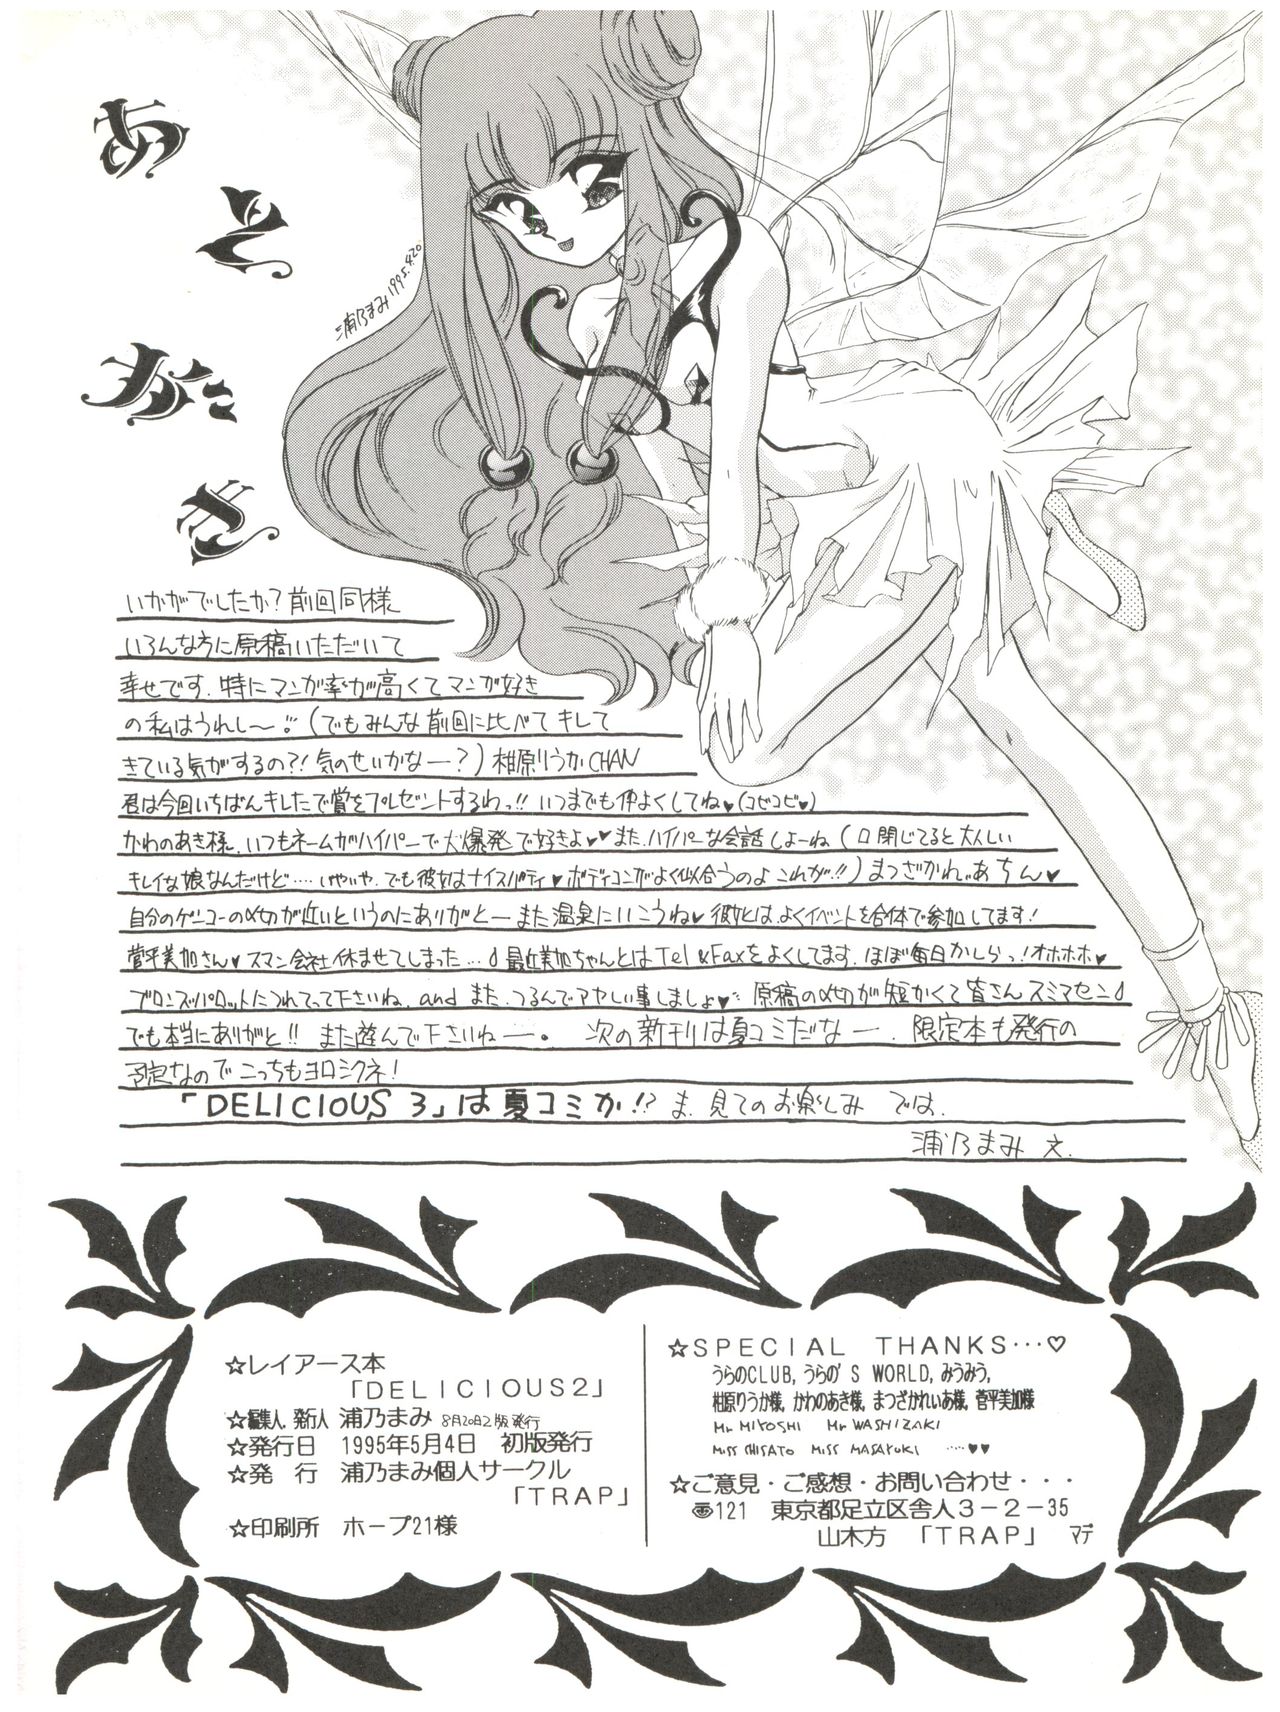 あとがき
浦乃まみ 1995.4.20
いかがでしたか?前回同様
いろんな方に原稿いただいて
幸せです。特にマンガ率が高くてマンガ好き
の私はうれし〜!!(でもみんな前回に比べてキレて
きている気がするの?!気のせいかなー?)柑原りうかCHAN
君は今回いちばんキレたで賞をプレゼントするわっ!!いつまでも仲よくしてね♥(コビコビ♥)
かわのあき様、いつもネームがハイパーで大爆発で好きよ♥♥また、ハイパーな会話しよーね(口閉じてると大人しい
キレイな娘なんだけど……いやいや、でも彼女はナイスバディ♥ボディコンがよく似合うのよこれが!!)まつざかれいあちん♥
自分のゲンコーの〆切が近いというのにありがとーまた温泉にいこうね♥彼女とは、よくイベントを合体で参加してます!
菅平美加さん♥スマン会社休ませてしまった…最近美加ちゃんとはTel&Faxをよくしてます。ほぼ毎日かしらっ!オホホホ♥
ブロンズパロットにつれてって下さいね、andまた、つるんでアヤしい事しましょ♥原稿の〆切が短かくて皆さんスミマセン
でも本当にありがと!!また遊んで下さいねー。次の新刊は夏コミだなー 限定本も発行の
予定なのでこっちもヨロシクネ!
「DELICIOUS 3」は夏コミか!?ま、見てのお楽しみ では、
浦乃まみ 文.
☆レイアース本
「DELICIOUS2」
☆編集人、発行人 浦乃まみ 8月20日2版発行
☆発行日 1995年5月4日 初版発行
☆発 行 浦乃まみ個人サークル
「TRAP」
☆印刷所 ホープ21様
☆SPECIAL THANKS…♡
うらのCLUB, うらの'S WORLD, みうみう,
柑原りうか様, かわのあき様, まつざかれいあ様, 菅平美加様
Mr. MIYOSHI Mr WASHIZAKI
MISS CHISATO MISS MASAYUKI ……♥♥
☆ご意見・ご感想・お問い合わせ・・・
〠121 東京都足立区舎人3-2-35
山木方 「TRAP」 マデ